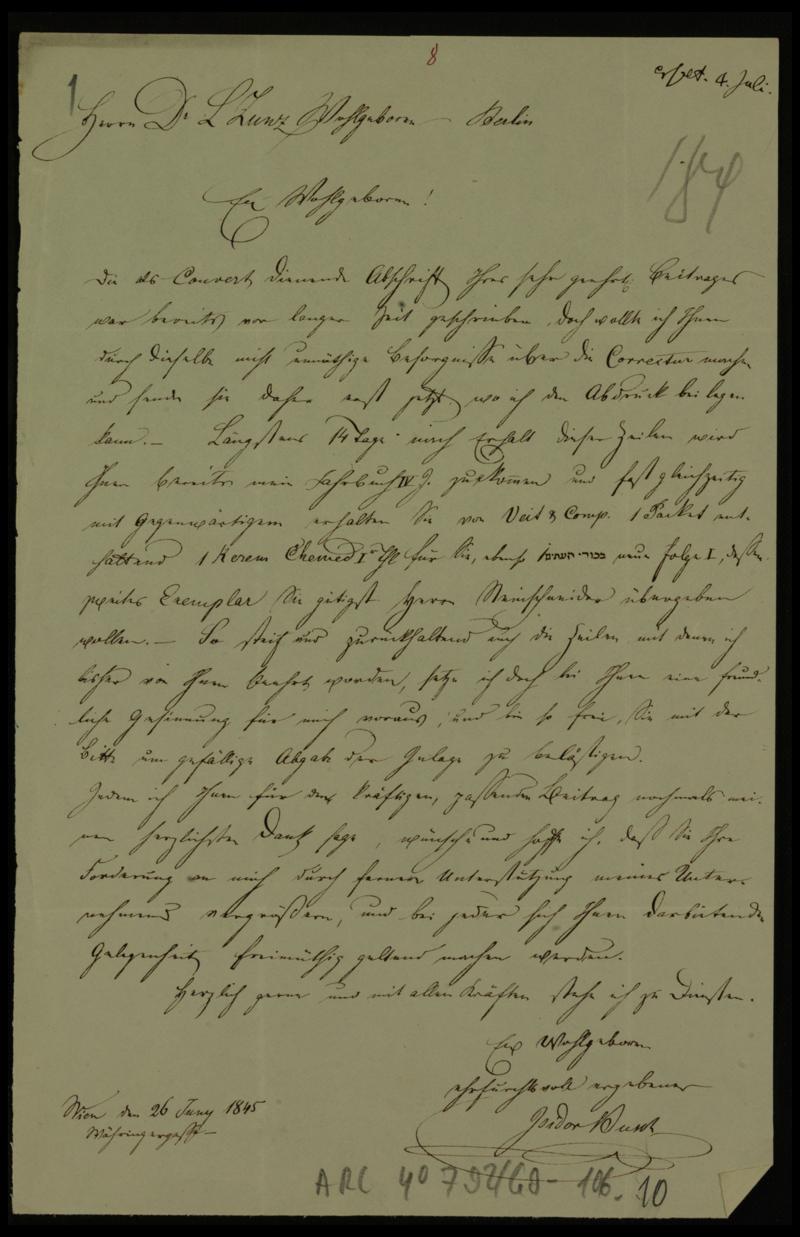 8
1
erhlt. 4. Juli.
Herrn Dr L Zunz Wohlgeboren Berlin
184
Ew Wohlgeboren!
Die als Couvert dienende Abschrift Ihres sehr geehrten Beitrages
war bereits vor langer Zeit geschrieben, doch wollte ich Ihnen
durch dieselbe nicht unnöthige Besorgnisse über die Correctur machen
und sende sie daher erst jetzt wo ich den Abdruck beilegen
kann. — Längstens 14 Tage nach Erhalt dieser Zeilen wird
Ihnen bereits mein Jahrbuch IV J. zukommen und fast gleichzeitig
mit Gegenwärtigem erhalten Sie von Veit & Comp. 1 Packet ent-
haltend 1 Kerem Chemed I Thl für Sie, ebenso 1 בכורי העתים neue Folge I, dessen
zweites Exemplar Sie gütigst Herrn Steinschneider übergeben
wollen. — So steif und zurückhaltend auch die Zeilen mit denen ich
bisher von Ihnen beehrt worden, setze ich doch bei Ihnen eine freund-
liche Gesinnung für mich voraus, und bin so frei, Sie mit der
Bitte um gefällige Abgabe der Inlage zu belästigen.
Indem ich Ihnen für den kräftigen, passenden Beitrag nochmals mei-
nen herzlichsten Dank sage, wünsche und hoffe ich, daß Sie Ihre
Forderung an mich durch fernere Unterstützung meines Unter-
nehmens vergrößern, und bei jeder sich Ihnen darbietenden
Gelegenheit freimüthig geltend machen werden.
Herzlich gerne und mit allen Kräften stehe ich zu Diensten.
Ew Wohlgeboren
ehrfurchtsvoll ergebener
Isidor Busch
Wien den 26 Juny 1845
Währingergasse
ARC 4° 792/G8-106.10